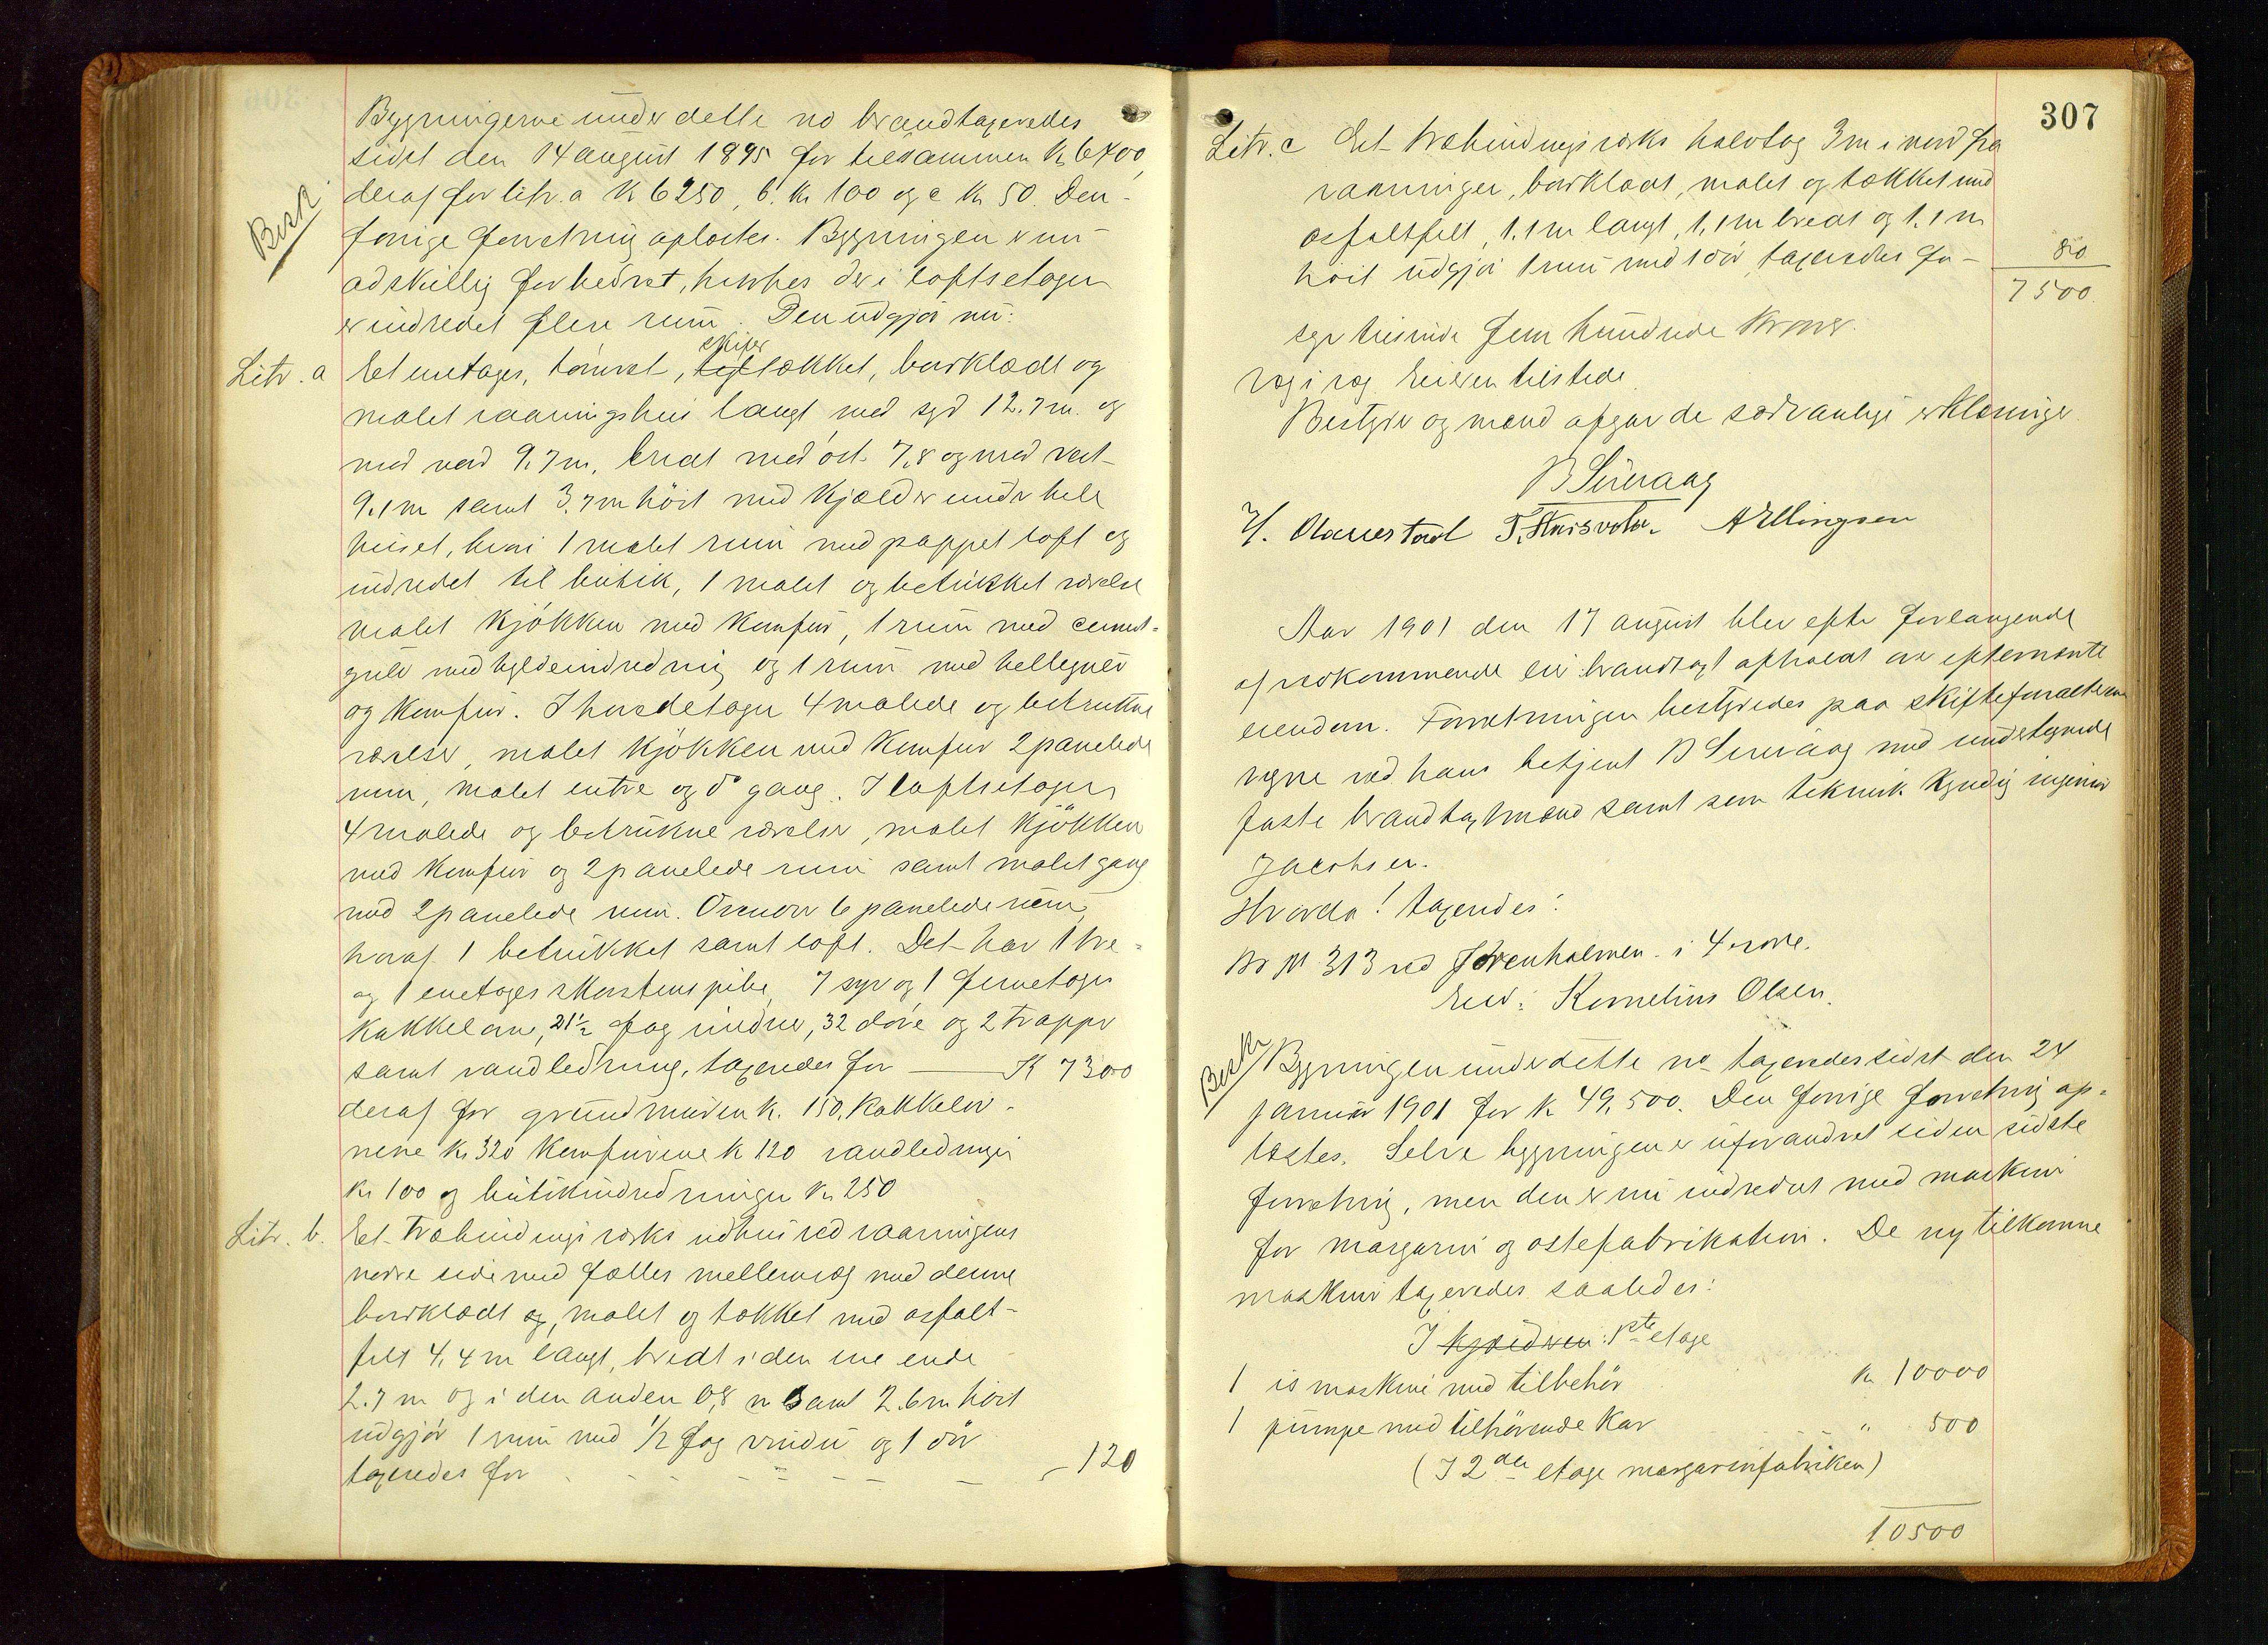 Bygningerne under dette no brandtaxeredes
sidst den 14 august 1895 for tilsammen K 6400,
Besk.
deraf for litr. a K 6250, b. Kr 100 og c Kr 50. Den
forrige forretning oplæstes. Bygningen er nu
adskillig forbedret, hvorhos der i loftsetagen
er indredet flere rum. Den udgjør nu:
Litr. a Et enetages, tømret, tegl skifertækket, bordklædt og
malet vaaningshus langt med syd 12.7 m. og
med nord 9.7 m, bredt med øst 7,8 og med vest
9.1 m samt 3.7 m høit med kjælder under hele
huset, hvori 1 malet rum med pappet loft og
indredet til butik, 1 malet og betrukket værelse
malet kjøkken med komfur, 1 rum med cement-
gulv med hyldeindredning og 1 rum med hellegulv
og komfur. I hovedetagen 4 malede og betrukne
værelser, malet kjøkken med komfur 2 panelede
rum, malet entre og do gang. I loftsetagen
4 malede og betrukne værelser, malet kjøkken
med komfur og 2 panelede rum samt malet gang
med 2 panelede rum. Ovenover 6 panelede rum,
hvoraf 1 betrukket samt loft. Det har 1 tre-
og 1 enetages skorstenspibe, 7 syv og 1 femetages
kakkelovne, 21 1/2 fag vinduer, 32 døre og 2 trapper
samt vandledning, taxeredes for — K 7300
deraf for grundmuren k. 150, kakkelov-
nene Kr 320 komfurene k 120 vandledningen
Kr 100 og butikindredningen Kr 250
Litr. b. Et træbindingsværks udhus ved vaaningens
nordre side med fælles mellemvæg med denne
bordklædt og, malet og tækket med asfalt-
filt 4,4 m langt, bredt i den ene ende
2.7 m og i den anden 0,8 m samt 2.6 m høit
udgjør 1 rum med 1/2 fag vindu og 1 dør
taxeredes for - - - - - 120
307
Litr. c Et træbindingsværks halvtag 3 m i nord fra
vaaningen, bordklædt, malet og tækket med
asfaltfilt, 1.1 m langt, 1,1 m bredt og 1.1 m
høit udgjør 1 rum med 1 dør, taxeredes for - 80
7500.
syv tusinde fem hundrede kroner.
Væg i væg. Eieren tilstede.
Bestyrer og mænd afgav de sædvanlige erklæringer.
B Sunaag
H. Olanestad T. Husvoln. A Ellingsen
Aar 1901 den 17 august blev efter forlangende
af vedkommende eier brandtaxt afholdt over efternævnte
eiendom. Forretningen bestyredes paa skifteforvalterens
vegne ved hans betjent B Sunaag med undertegnede
faste brandtaxtmænd samt som teknisk kyndig ingeniør
Jacobsen.
Hvorda! taxeredes:
Br N 313 ved Jorenholmen i 4 rode.
Eier: Kornelius Olsen.
Beskr
Bygningen under dette no taxeredes sidst den 24
januar 1901 for k 49,500. Den forrige forretning op-
læstes. Selve bygningen er uforandret siden sidste
forretning, men den er nu indredet med maskiner
for margarin og ostefabrikation. De ny tilkomne
maskiner taxeredes saaledes:
I kjælderen: 1ste etage
1 is maskine med tilbehør Kr 10000
1 pumpe med tilhørende kar " 500
(I 2den etage margarinfabriken)
10500